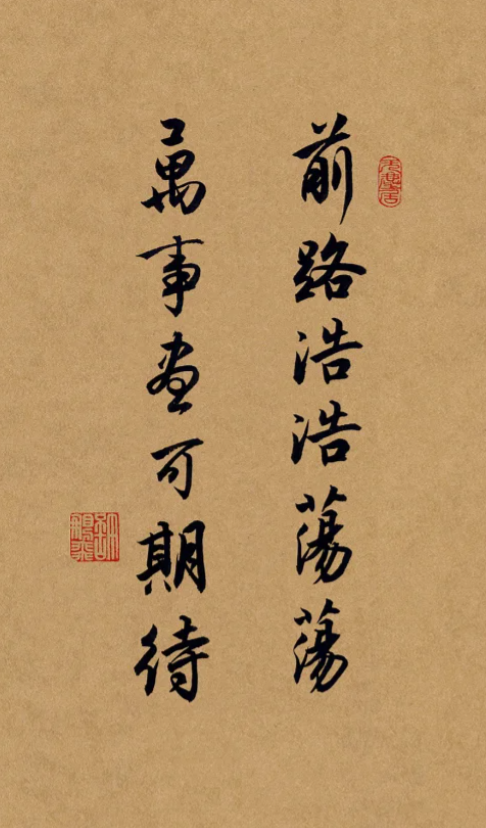 前路浩浩蕩蕩
萬事盡可期待